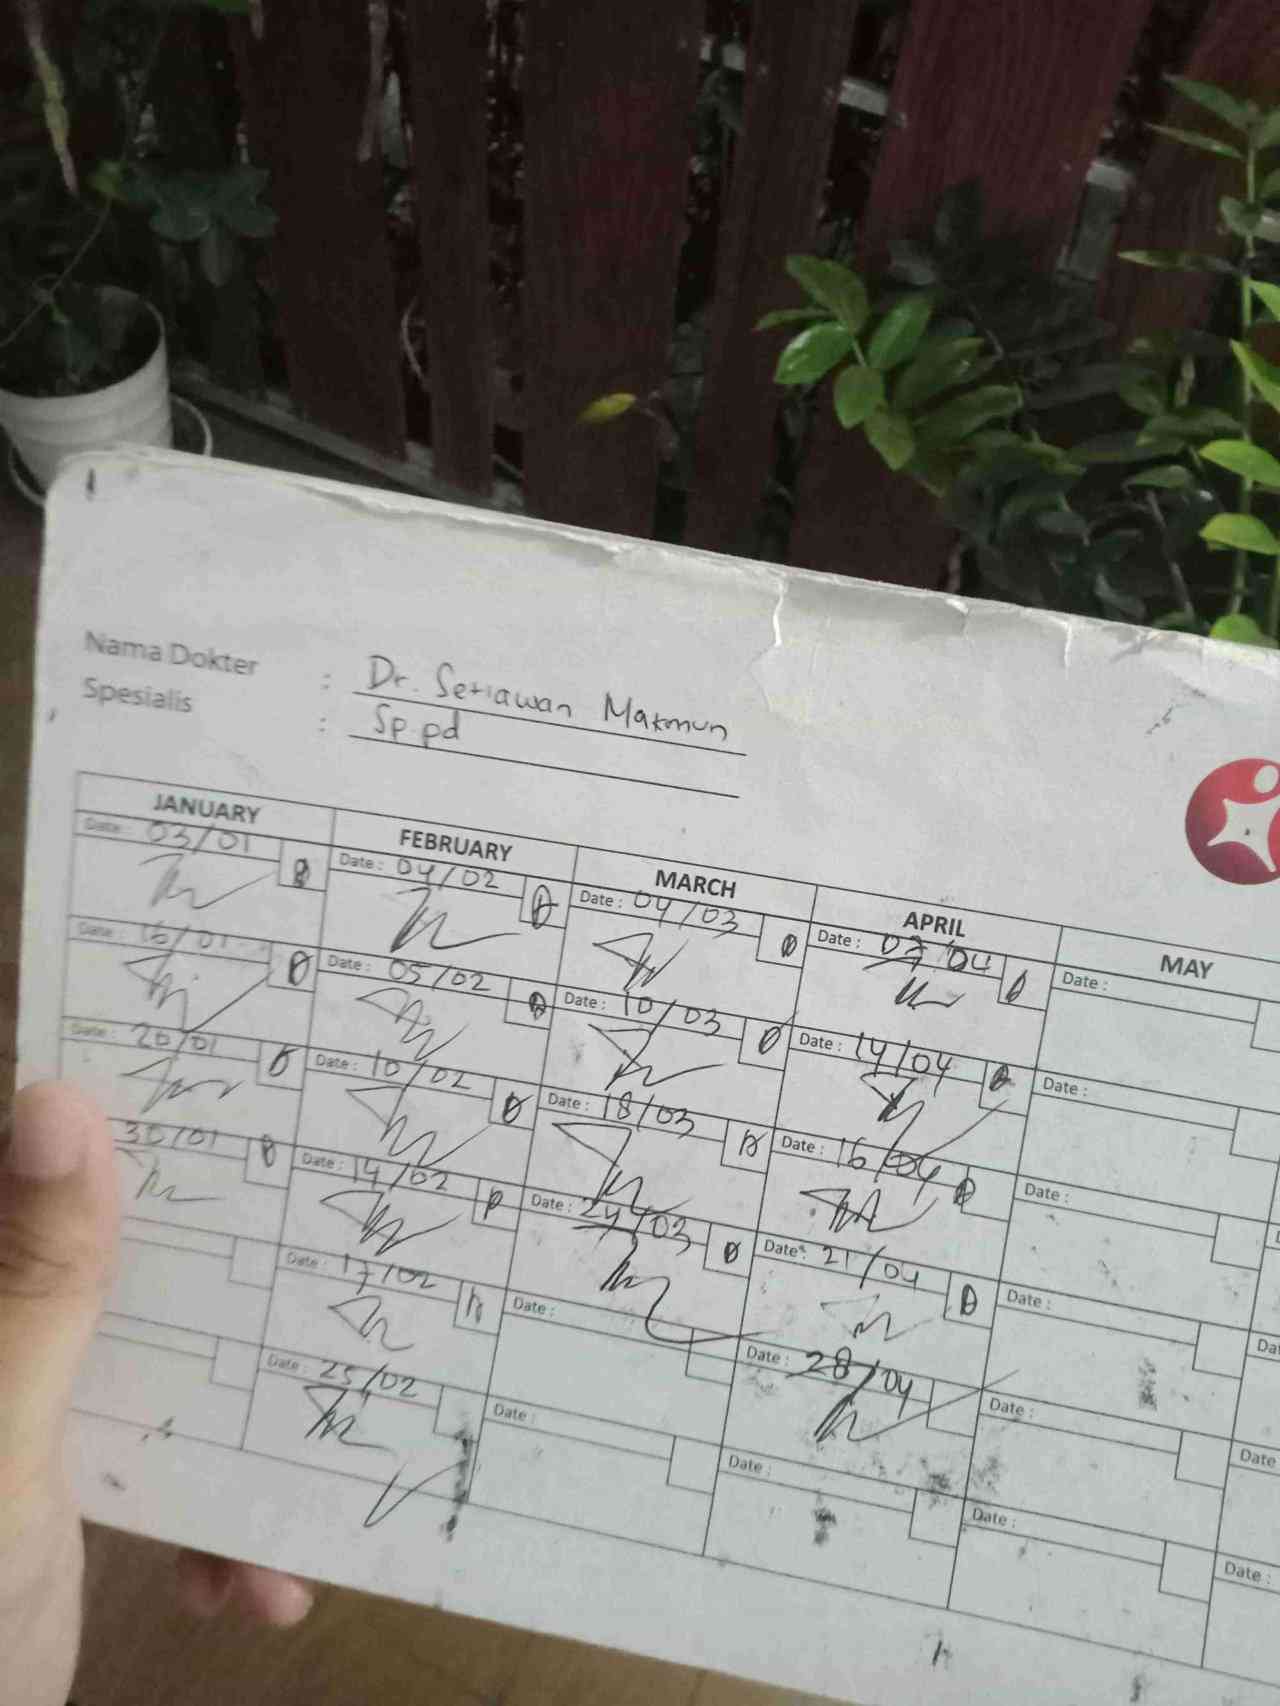 Nama Dokter : Dr. Setiawan Makmun
Spesialis : Sp.pd
JANUARY FEBRUARY MARCH APRIL MAY
Date : 03/01 Date : 04/02 Date : 04/03 Date : 07/04 Date :
Date : 16/01 Date : 05/02 Date : 10/03 Date : 14/04 Date :
Date : 20/01 Date : 10/02 Date : 18/03 Date : 16/04 Date :
30/01 Date : 14/02 Date : 24/03 Date : 21/04 Date :
Date : 17/02 Date : Date : 28/04 Date :
Date : 25/02 Date : Date : Date : Date :